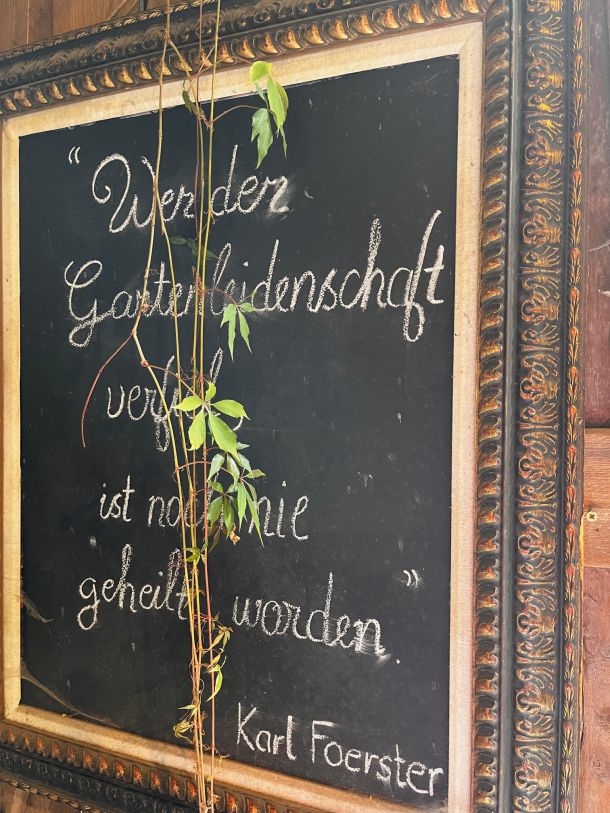 “Wer der
Gartenleidenschaft
verfiel
ist noch nie
geheilt worden.”
Karl Foerster